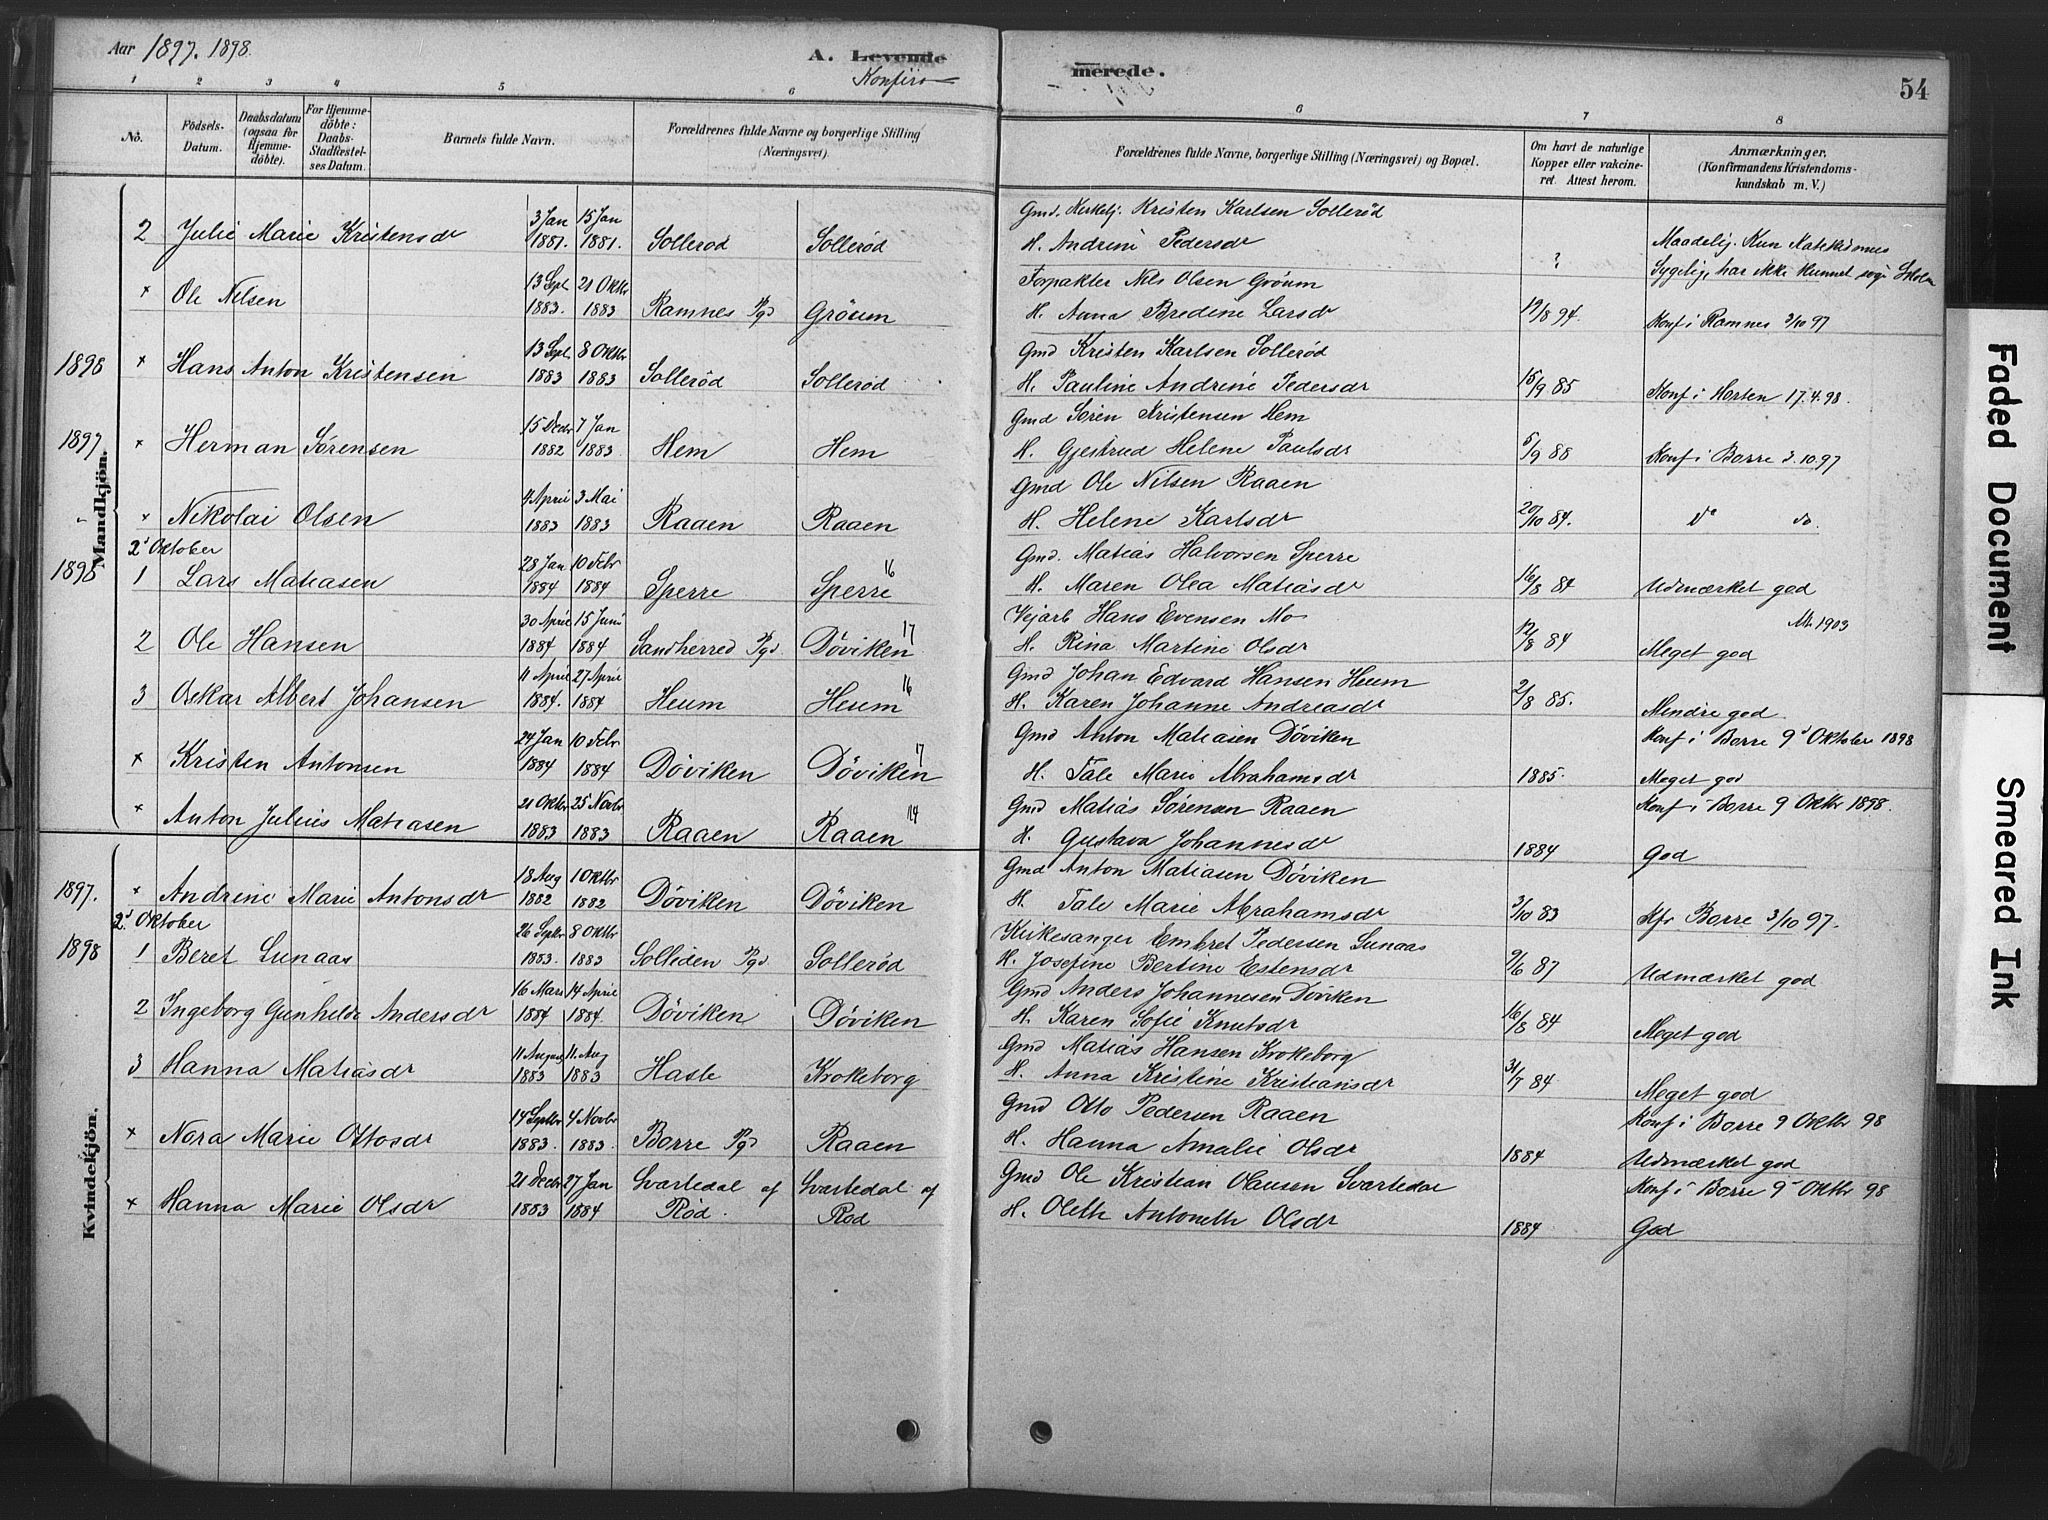 Aar 1897. 1898.
A. Levende
Konfir
merede.
54
1 2 3 4 5 6 6 7 8
No.
Födsels-Datum.
Daabsdatum (ogsaa for Hjemme-döbte).
For Hjemme-döbte: Daabs-Stadfæstel-ses Datum.
Barnets fulde Navn.
Forældrenes fulde Navne og borgerlige Stilling (Næringsvei).
Forældrenes fulde Navne, borgerlige Stilling (Næringsvei) og Bopæl.
Om havt de naturlige Kopper eller vakcine-ret. Attest herom.
Anmærkninger, (Konfirmandens Kristendoms-kundskab m. V.)
Mandkjön.
3 Jan 15 Jan Gmd. Kirkelj. Kristen Karlsen Sollerød
2 Julie Marie Kristensdr 1881. 1881. Sollerød Sollerød H. Andrine Pedersdr ? Maadelig. Kun Katekismus
Sygelig, har ikke kunnet søge Skolen
13 Sept 21 Oktbr Forpakter Nils Olsen Gröum
x Ole Nilsen 1883. 1883 Ramnes Pgd Gröum H. Anna Bredine Larsdr 19/8 94. Konf i Ramnes 3/10 97
13 Sept 8 Oktbr Gmd Kristen Karlsen Sollerød
1898 x Hans Anton Kristensen 1883 1883 Sollerød Sollerød H. Pauline Andrine Pedersdr 15/9 85 Konf i Horten 17.4.98.
15 Decbr 7 Jan Gmd Søren Kristensen Hem
1897 x Herman Sørensen 1882 1883 Hem Hem H. Gjertrud Helene Paulsdr 5/9 88 Konf i Borre 3.10.97
4 April 3 Mai Gmd Ole Nilsen Raaen
x Nikolai Olsen 1883 1883 Raaen Raaen H. Helene Karlsdr 20/10 84. do do.
2' Oktober 28 Jan 10 Febr Gmd. Matias Halvorsen Sperre
1898 1 Lars Matiasen 1884 1884 Sperre Sperre 16 H. Maren Olea Matiasdr 16/8 84 Udmærket god
30 April 15 Juni Vejarb Hans Evensen Mo Att. 1903
2 Ole Hansen 1884 1884 Sandherred Pgd Döviken 17 H. Rina Martine Olsdr 12/8 84 Meget god
11 April 27 April Gmd Johan Edvard Hansen Heum
3 Oskar Albert Johansen 1884. 1884 Heum Heum 16 H. Karen Johanne Andreasdr 2/8 85. Mindre god
24 Jan 10 Febr Gmd Anton Matiasen Döviken Konf i Borre 9' Oktober 1898
x Kristen Antonsen 1884 1884 Döviken Döviken 17 H. Tale Marie Abrahamsdr 1885. Meget god
21 Oktbr 25 Novbr Gmd Matias Sörensen Raaen Konf i Borre 9 Oktbr 1898.
x Anton Julius Matiasen 1883 1883 Raaen Raaen 14 H. Gustava Johannesdr 1884 God
Kvindekjön.
18 Aug 1 Oktbr Gmd Anton Matiasen Döviken
1897. x Andrine Marie Antonsdr 1882 1882 Döviken Döviken H. Tale Marie Abrahamsdr 3/10 83 Kfr Borre 3/10 97.
2' Oktober 26 Septbr 8 Oktbr Kirkesanger Embret Pedersen Lunaas
1898 1 Beret Lunaas 1883. 1883 Solliden Pgd. Sollerød H. Josefine Bertine Estensdr 9/6 87 Udmærket god
16 Mars 14 April Gmd Anders Johannesen Döviken
2 Ingeborg Gunhilde Andersdr 1884 1884. Döviken Döviken H. Karen Sofie Knutsdr 16/8 84 Meget god
11 August 11. Aug Gmd Matias Hansen Krokeborg
3 Hanna Matiasdr 1883 1883 Hasle Krokeborg H. Anna Kristine Kristiansdr 31/7 84 Meget god
14 Septbr 4 Novbr Gmd Otto Pedersen Raaen Konf i Borre 9 Oktbr 98
x Nora Marie Ottosdr 1883. 1883. Borre Pgd Raaen H. Hanna Amalie Olsdr 1884 Udmærket god
21 Decbr 27 Jan Svartedal af Svartedal af Gmd Ole Kristian Olausen Svartedal Konf i Borre 9 Oktbr 98
x Hanna Marie Olsdr 1883 1884 Rød. Rød H. Oleth Antoneth Olsdr 1884 God
Faded Document
Smeared Ink